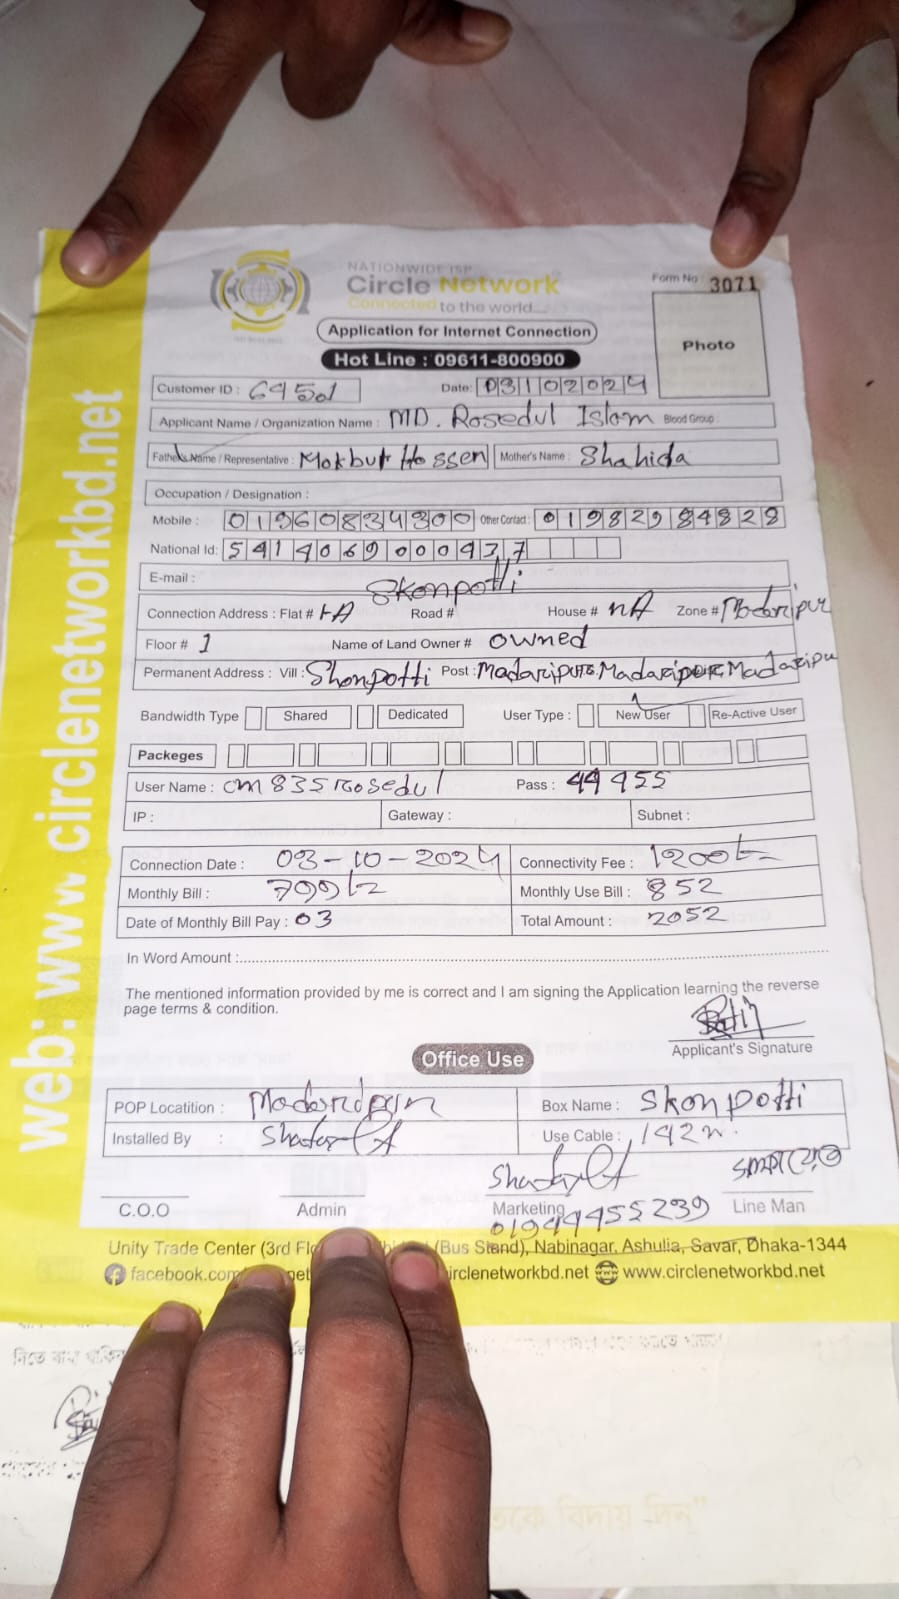 web: www.circlenetworkbd.net
NATIONWIDE ISP
Circle Network
Connected to the world
Form No : 3071
Photo
Application for Internet Connection
Hot Line : 09611-800900
Customer ID : 69501 Date: 03102024
Applicant Name / Organization Name : MD. Rosedul Islam Blood Group :
Father's Name / Representative : Mokbul Hossen Mother's Name : Shahida
Occupation / Designation :
Mobile : Other Contact : 01982984828
National Id:
E-mail :
Skonpotti
Connection Address : Flat # Road # House # nA Zone # Madaripur
Floor # 1 Name of Land Owner # owned
Permanent Address : Vill : Shonpotti Post : Madaripur
Bandwidth Type Shared Dedicated User Type : New User Re-Active User
Packeges
User Name : cm835rosedul Pass : 44955
IP : Gateway : Subnet :
Connection Date : 03-10-2024 Connectivity Fee : 1200
Monthly Bill : 799 Monthly Use Bill : 852
Date of Monthly Bill Pay : 03 Total Amount : 2052
In Word Amount :
The mentioned information provided by me is correct and I am signing the Application learning the reverse
page terms & condition.
Applicant's Signature
Office Use
POP Locatition : Box Name : Skonpotti
Installed By : Use Cable : 192
C.O.O Admin Marketing Line Man
Unity Trade Center (3rd (Bus Stand), Nabinagar, Ashulia, Savar, Dhaka-1344
facebook.com www.circlenetworkbd.net
নিতে
বিদায় দিন"